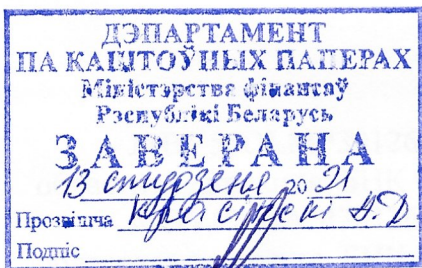 ДЭПАРТАМЕНТ
ПА КАШТОЎНЫХ ПАПЕРАХ
Міністэрства фінансаў
Рэспублікі Беларусь
ЗАВЕРАНА
13 студзеня 20 21
Прозвішча Красінскі А.Д
Подпіс